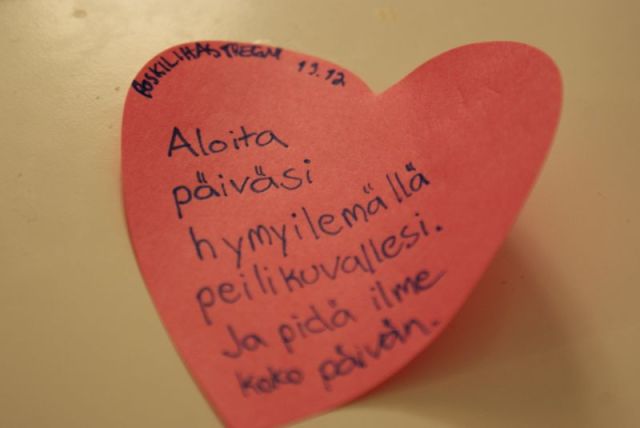 POSKILIHASTREENI 13.12
Aloita
päiväsi
hymyilemällä
peilikuvallesi.
Ja pidä ilme
koko päivän.